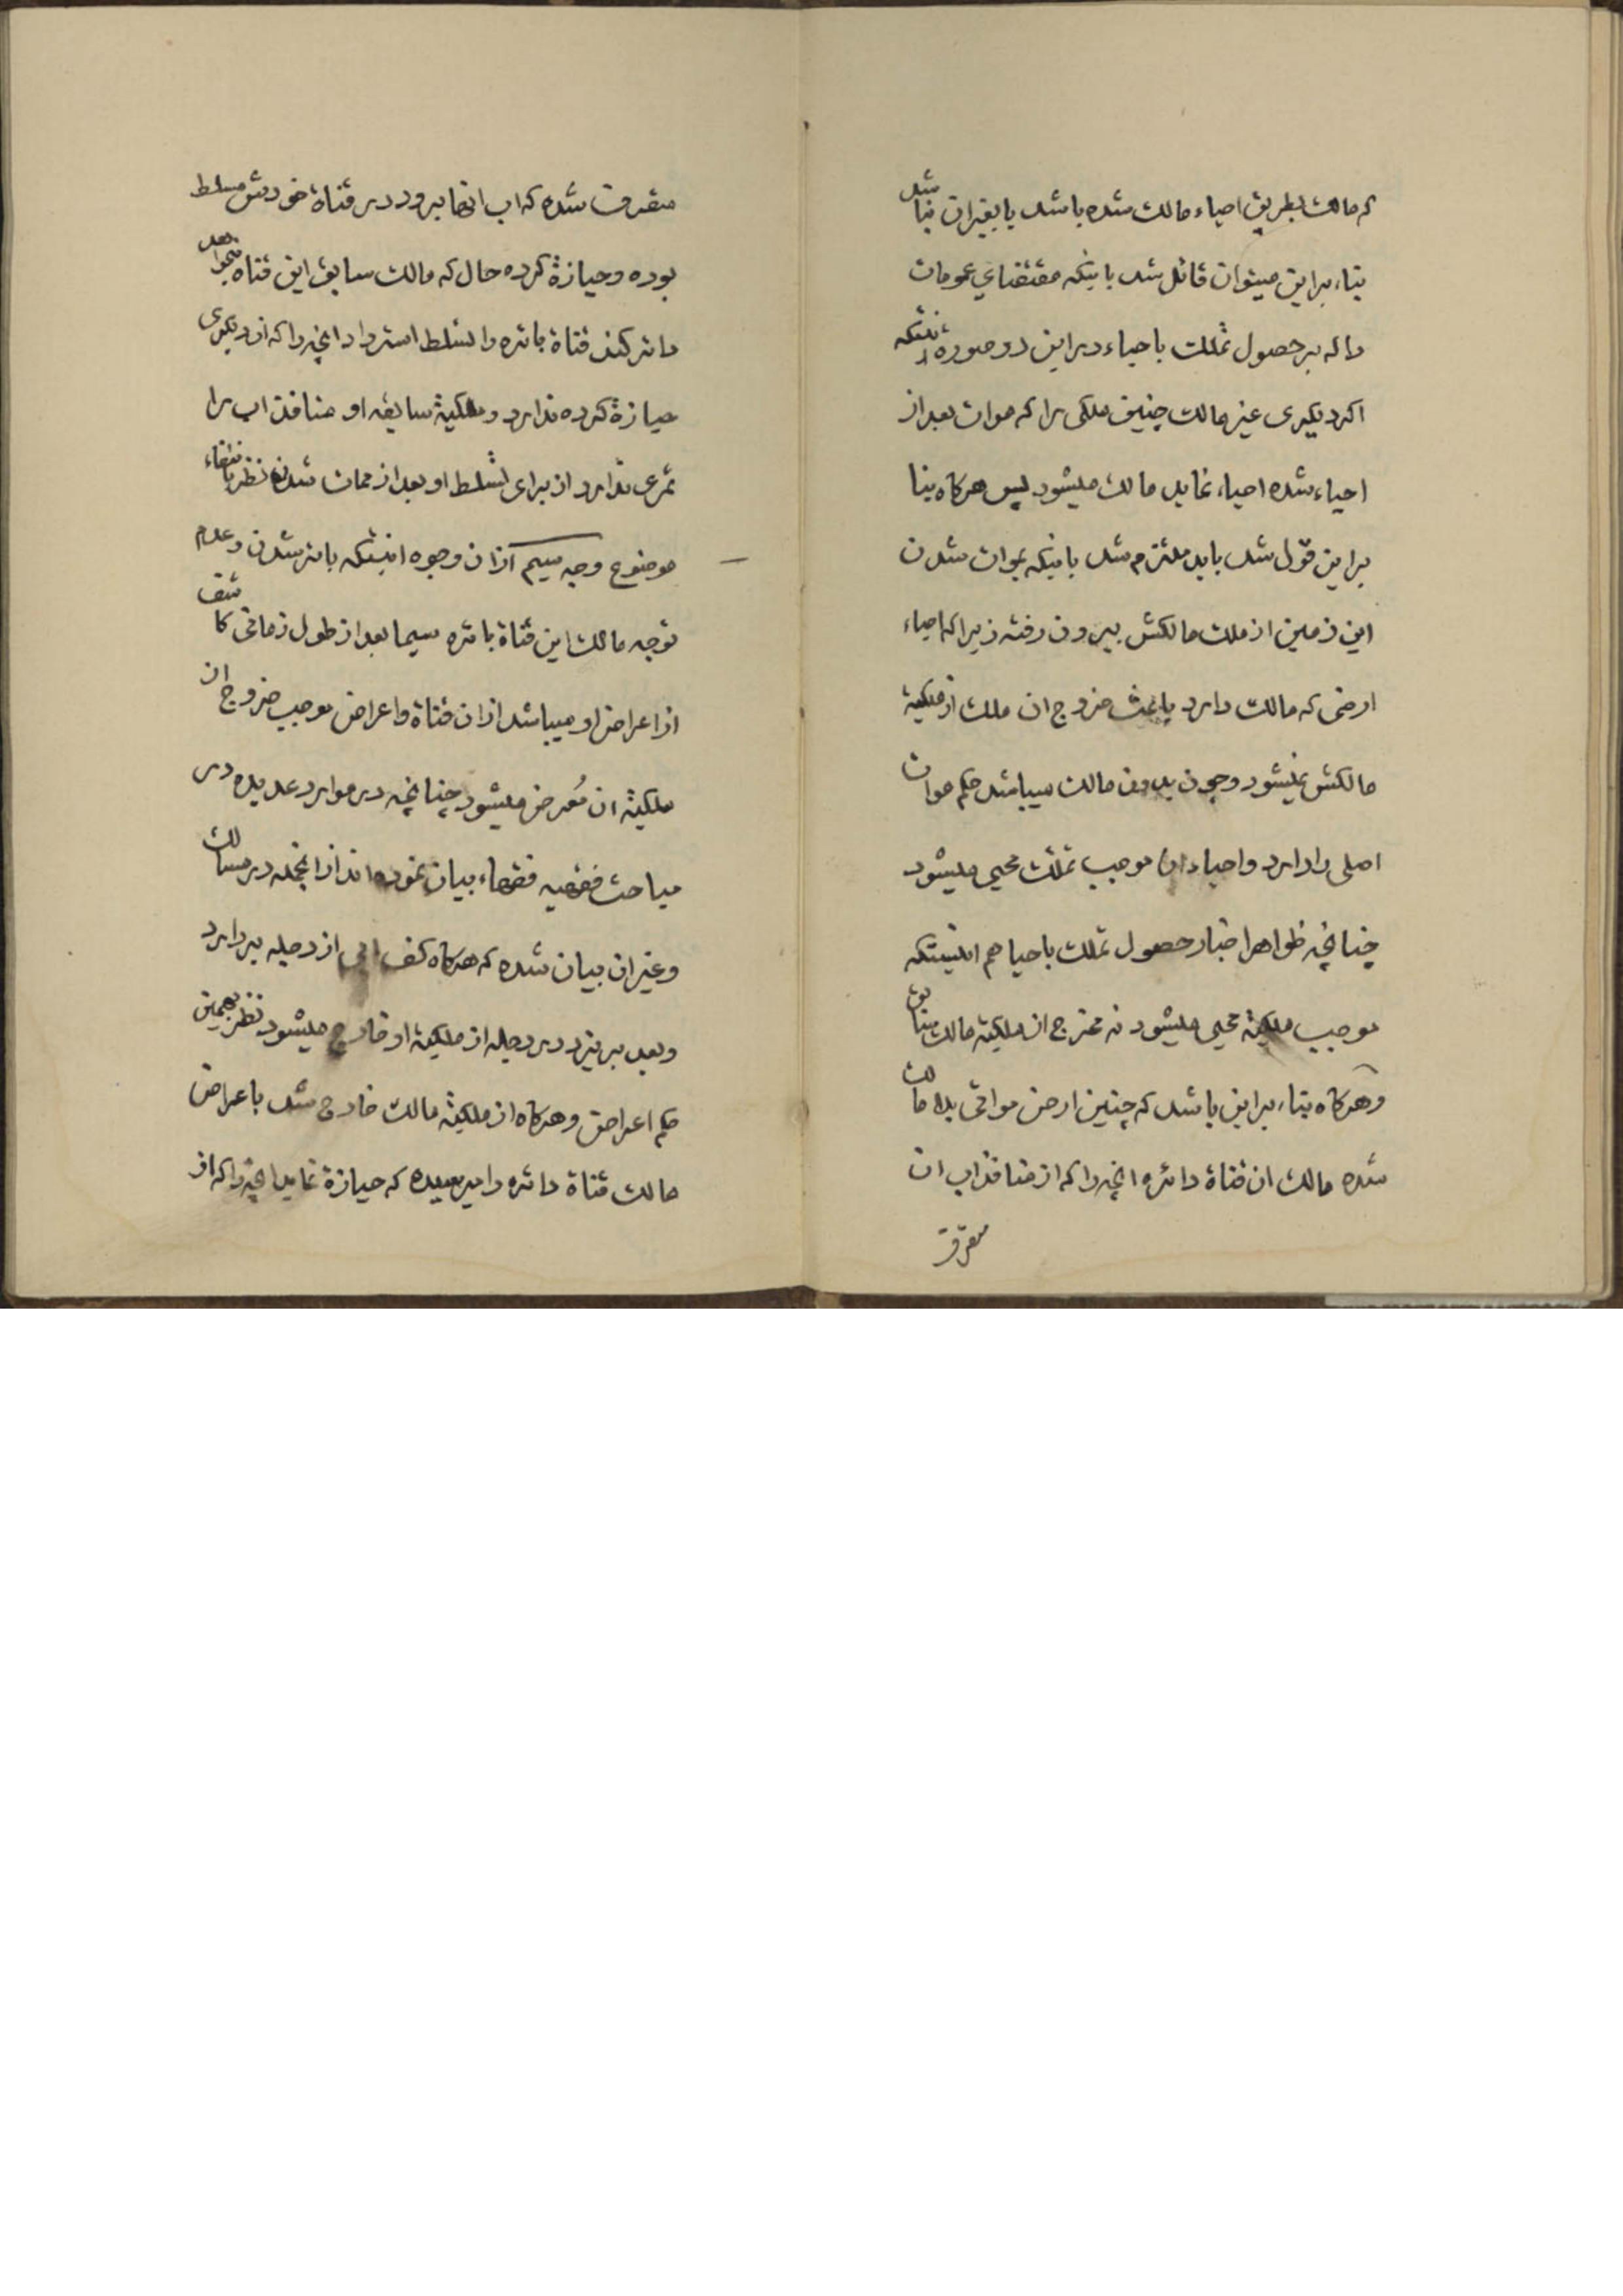 که مالک بطریق احیاء مالک شده باشد یا بغیر ان بنا شد
بناء براین میتوان قائل شد باینکه مقتضای عمومات
داله بر حصول تملک باحیاء در این دو صوره اینستکه
اکر دیکری غیر مالک چنین ملکی را که موات بعد از
احیاء شده احیاء نماید مالک میشود پس هرکاه بنا
براین قول شد باید ملتزم شد باینکه بموات شدن
این زمین از ملک مالکش بیرون رفته زیرا که احیاء
ارضی که مالک دارد باعث خروج ان ملک از ملکیة
مالکش نمیشود و چون بدون مالک میباشد حکم موات
اصلی را دارد و احیاء ان موجب تملک محیی میشود
چنانچه ظواهر اخبار حصول تملک باحیا هم اینستکه
موجب ملکیة محیی میشود نه مخرج از ملکیة مالک سابق
و هرکاه بناء براین باشد که چنین ارض مواتی بلا مالک
شده مالک ان قناة دائره انچه را که از منافذ اب ان
متفرق
متفرق شده که اب انها برود در قناة خودش مسلط
بوده و حیازة کرده حال که مالک سابق این قناة بخواهد
دائر کند قناة بائره را تسلط استرداد انچه را که ان دیکری
حیازة کرده ندارد و ملکیة سابقه او منافذ اب را
ثمری ندارد از برای تسلط او بعد از ممات شدن نظر بانتفاء
موضوع وجه سیم از ان وجوه اینستکه بائر شدن و عدم
توجه مالک این قناة بائره سیما بعد از طول زمانی کاشف
از اعراض او میباشد از ان قناة و اعراض موجب خروج ان
ملکیة ان مُعرض میشود چنانچه در موارد عدیده در
مباحث فقهیه فقهاء بیان نموده اند از انجمله در مسالک
و غیر ان بیان شده که هرکاه کف ابی از دجله بردارد
و بعد بریزد در دجله از ملکیة او خارج میشود نظر بهمین
حکم اعراض و هرکاه از ملکیة مالک خارج شد باعراض
مالک قناة دائره را میرسیده که حیازة نماید انچه را که از